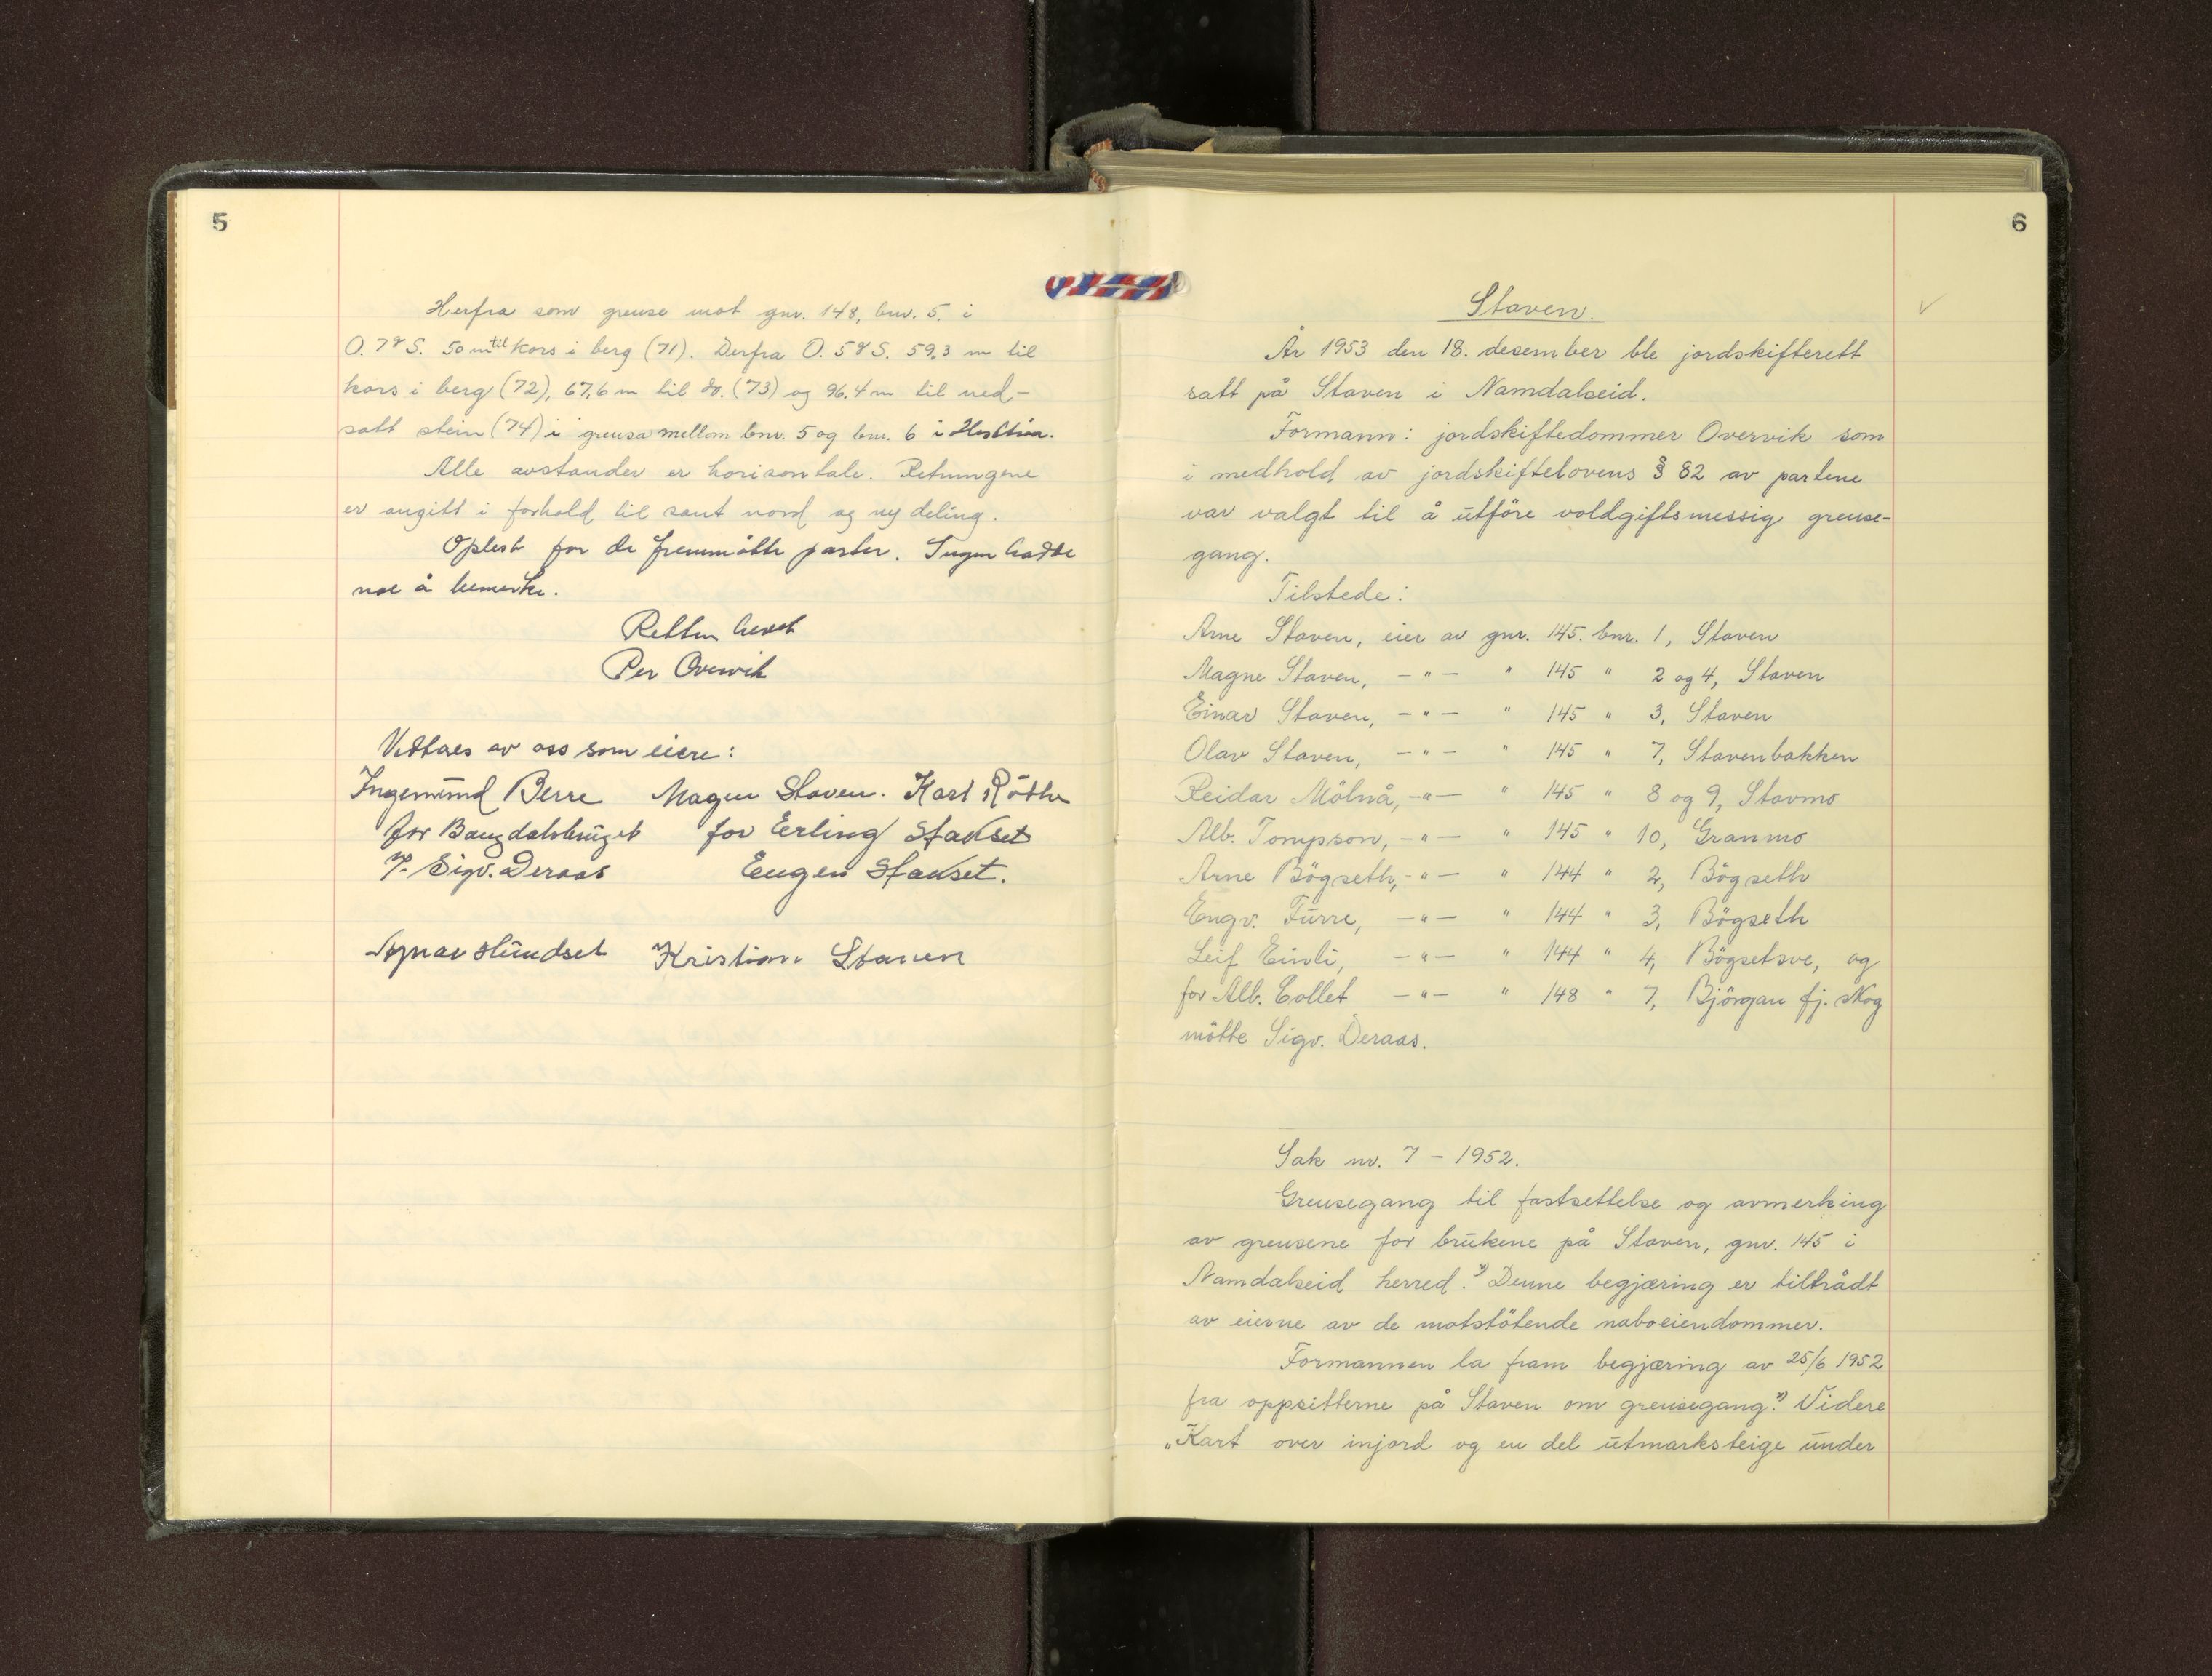 5
Herfra som grense mot gnr. 148, bnr. 5. i
O. 7ᵍ S. 50 m til kors i berg (71). Derfra O. 5ᵍ S. 59,3 m til
kors i berg (72), 67,6 m til do. (73) og 96,4 m til ned-
satt stein (74) i grensa mellom bnr. 5 og bnr. 6 i
Alle avstander er horisontale. Retningene
er angitt i forhold til sant nord og ny deling.
Oplest for de fremmötte parter. Ingen hadde
noe å bemerke.
Retten hevet
Per Overvik
Vedtaes av oss som eiere:
Ingemund Berre Magne Staven. Karl Röthe
for Bangdalsbruget for Erling Stakset
Sigv. Deraas Eugen Stakset.
Hundset Kristian Staven
6
Staven.
År 1953 den 18. desember ble jordskifterett
satt på Staven i Namdalseid.
Formann: jordskiftedommer Overvik som
i medhold av jordskiftelovens § 82 av partene
var valgt til å utföre voldgiftsmessig grense-
gang.
Tilstede:
Arne Staven, eier av gnr. 145. bnr. 1, Staven
Magne Staven, -"- " 145 " 2 og 4, Staven
Einar Staven, -"- " 145 " 3, Staven
Olav Staven, -"- " 145 " 7, Stavenbakken
Reidar Mölnå, -"- " 145 " 8 og 9, Stavmo
Alb. Tompson, -"- " 145 " 10, Granmo
Arne Bögseth, -"- " 144 " 2, Bögseth
Engv. Furre, -"- " 144 " 3, Bögseth
Leif Einli, -"- " 144 " 4, Bögsetsve, og
for Alb. Collet -"- " 148 " 7, Björgan fj. skog
mötte Sigv. Deraas.
Sak nr. 7 - 1952.
Grensegang til fastsettelse og avmerking
av grensene for brukene på Staven, gnr. 145 i
Namdalseid herred. Denne begjæring er tiltrådt
av eierne av de motstötende naboeiendommer.
Formannen la fram begjæring av 25/6 1952
fra oppsitterne på Staven om grensegang. Videre
"Kart over injord og en del utmarksteige under